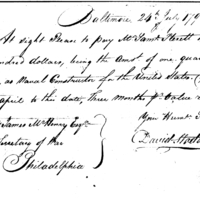 Baltimore 24th July 179
At sight Please to pay Mr Saml Sterett
hundred dollars, being the Amot of one quar
as Naval Constructor of the United States
April to this date, three Months pr Value
James McHenry Esqr
Secretary of War
Philadelphia
David Stod